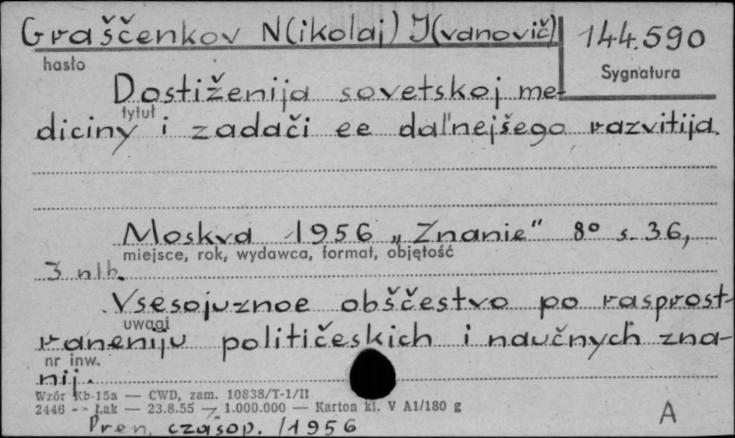 Graščenkov N(ikolaj) I(vanovič) 144.590
hasło Sygnatura
Dostiženija sovetskoj me-
tytuł
diciny i zadači ee dal'nejšego razvitija.
Moskva 1956 „Znanie" 8° s. 36,
miejsce, rok, wydawca, format, objętość
3 nlb.
Vsesojuznoe obščestvo po rasprost-
uwagi
raneniju političeskich i naučnych zna-
nr inw.
nij.
Wzór Kb-15a — CWD, zam. 10838/T-1/II
2446 - - Łak — 23.8.55 — 1.000.000 — Karton kl. V A1/180 g
Pren. czasop. /1956 A